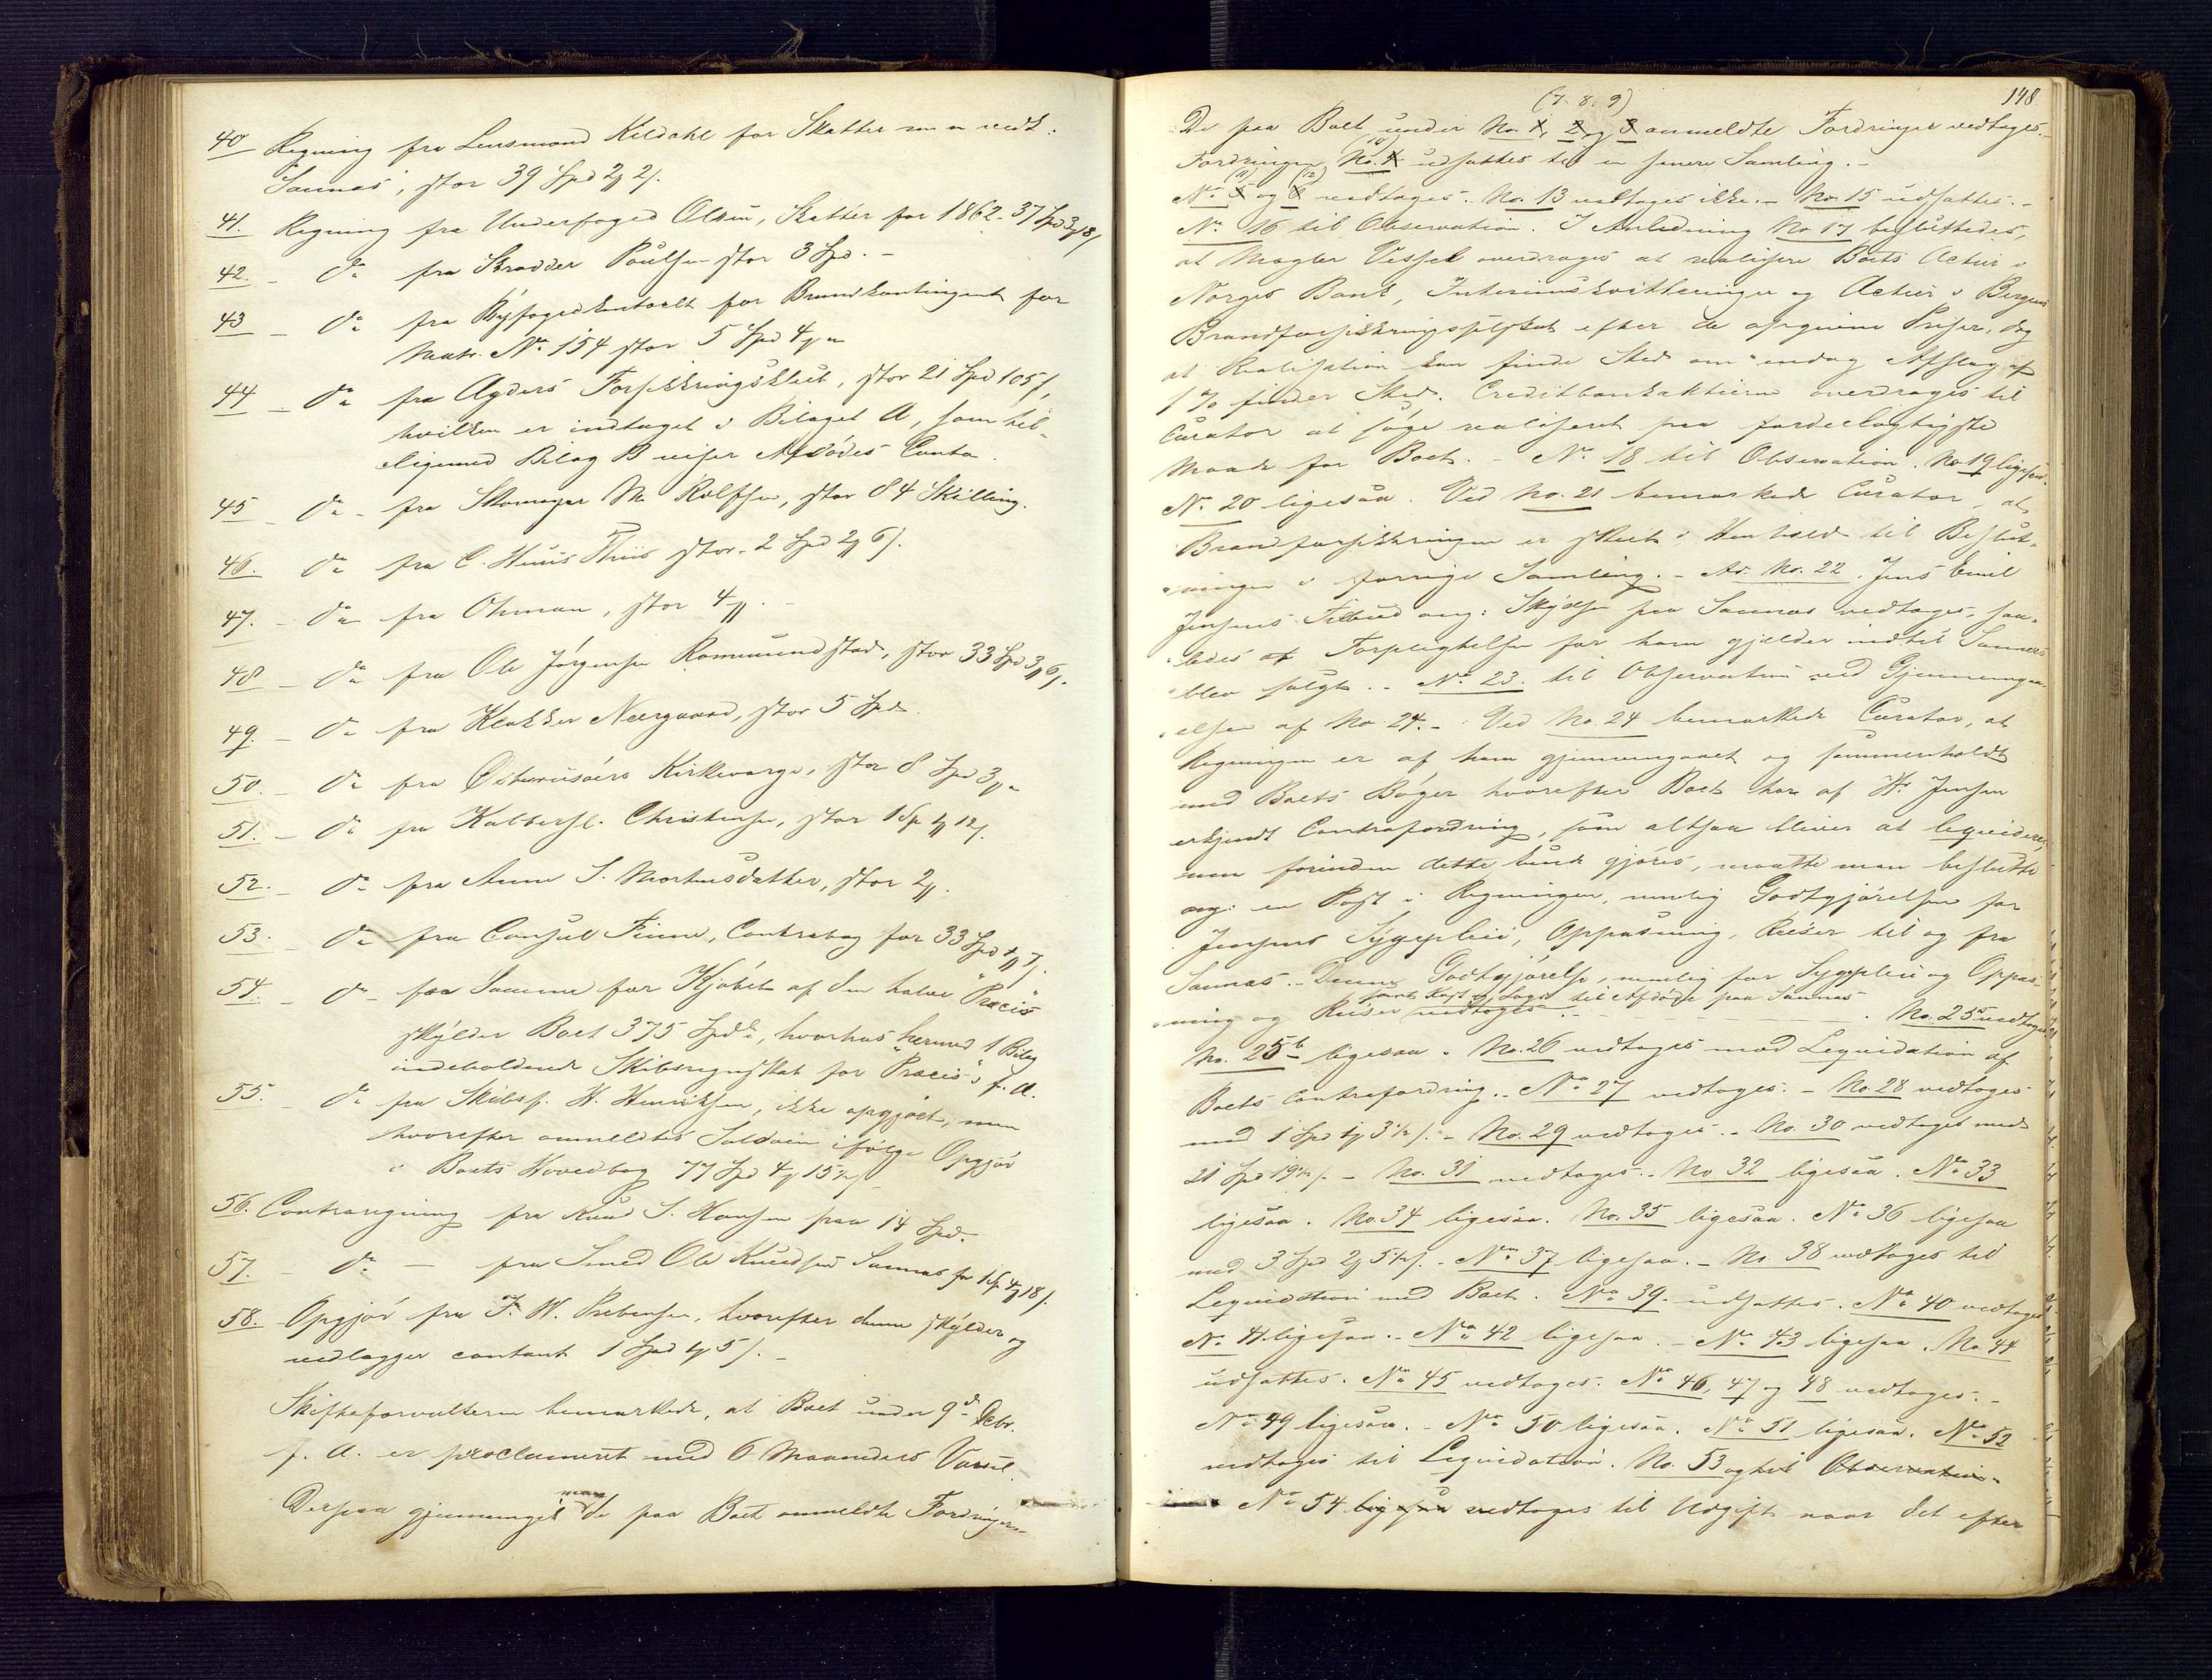 40 Regning fra Lensmand Kildahl for Skatter m. m. vedk:
Sannæs, stor 39 Spd 2 ₰ 2 s.
41. Regning fra Underfoged Olsen, Skatter for 1862 - 37 Spd 3 ₰ 18 s
42. - do fra Skrædder Poulsen stor 3 Spd. -
43 - do fra Byfogedkontoret for Brandkontingent for
Matr. No 154 stor 5 Spd 4 ₰ "
44 - do fra Agders Forsikkringsklub, stor 21 Spd 105 s,
hvilken er indtaget i Bilaget A, som til-
ligemed Bilag B viser Afdødes Conto.
45 - do - fra Skomager M. Rolfsen, stor 84 Skilling.
46. do fra C. Huus Thiis stor - 2 Spd 2 ₰ 6 s.
47. - do fra Ohman, stor 4 ₰. -
48 - do fra Ole Jørgensen Rommundstad, stor 33 Spd 3 ₰ 6 s.
49. - do fra Klokker Neergaard, stor 5 Spd.
50. - do fra Østerrisøers Kirkeværge, stor 8 Spd 3 ₰ "
51. - do fra Kalbersl. Christensen, stor 1 Sp 4 ₰ 12 s.
52. - do fra Anne S. Mortensdatter, stor 2 ₰.
53. - do fra Consul Finne, Contrabog for 33 Spd 1 ₰ 7 s.
54. - do - fra Samme for Kjøbet af den halve "Præcis"
skylder Boet 375 Spd, hvorhos hermed 1 Bilag
indeholdende Skibsregnskab for "Præcis" f. A.
55. - do fra Skibsf. H. Henriksen, ikke opgjort, men
hvorefter anmeldtes Saldoen ifølge Opgjør
i Boets Hovedbog 77 Spd 4 ₰ 15 ½ s
56. Contraregning fra Knud S. Hansen paa 14 Spd.
57. - do - fra Smed Ole Knudsen Sannæs for 1 Sp 4 ₰ 18 s.
58. Opgjør fra F. W. Prebensen, hvorefter denne skylder og
vedlægger contant 1 Spd 4 ₰ 5 s. -
Skifteforvalteren bemærkede, at Boet under 9de Debr.
f. A. er proclameret med 6 Maaneders Varsel.
Derpaa gjennemgik man de paa Boet anmeldte Fordringer. -
148
(7. 8. 9)
De paa Boet under No. 1, 2 og 3 anmeldte Fordringer vedtages. -
(10)
Fordringen No. 4 udsættes til en senere Samling. -
(11) (12)
No 5 og 6 vedtages. No. 13 vedtages ikke. - No. 15 udsættes. -
No 16 til Observation. I Anledning No 17 besluttedes,
at Mægler Vessel overdrages at realisere Boets Actier i
Norges Bank, Interimskvitteringer og Actier i Bergens
Brandforsikkringsselskab efter de opgivne Priser, dog
at Realisation kan finde Sted om endog Afslag af
1 % finder Sted. Creditbankaktierne overdrages til
Curator at søge realiseret paa fordeelagtigste
Maade for Boet. - No 18 til Observation. No 19 ligesaa.
No 20 ligesaa. Ved No. 21 bemærkede Curator, at
Brandforsikkringen er skeet i Henhold til Beslut-
ningen i forrige Samling. - Ad. No. 22. Jens Emil
Jensens Tilbud ang: Skydsen paa Sannæs vedtages, saa-
ledes at Forpligtelsen for ham gjelder indtil Sannæs
blev solgt. - No 23. til Observation ved Gjennemgaa-
elsen af No 24. - Ved No. 24 bemærkede Curator, at
Regningen er af ham gjennemgaaet og sammenholdt
med Boets Bøger hvorefter Boet har af Hr Jensen
erkjendt Contrafordring, som altsaa bliver at liqvidere,
men forinden dette kunde gjøres, maatte man beslutte
ang: en Post i Regningen, nemlig Godtgjørelsen for
Jensens Sygepleie, Oppasning, Reiser til og fra
Sannæs. - Denne Godtgjørelse, nemlig for Sygepleie og Oppas-
samt Kost og Logi til Afdøde paa Sannæs
ning og Reiser vedtoges - - - - . No. 25a vedtages
No. 25b ligesaa. No. 26 vedtages mod Liqvidation af
Boets Contrafordring. - No 27 vedtages. - No 28 vedtages
med 1 Spd 1 ₰ 3 ½ s. - No. 29 vedtages. - No. 30 vedtages med
21 Spd 19 ½ s. - No. 31 vedtages. - No 32 ligesaa. No 33
ligesaa. No. 34 ligesaa. No. 35 ligesaa. No 36 ligesaa
med 3 Spd 2 ₰ 5 ½ s. - No 37 ligesaa. - No. 38 vedtages til
Liqvidation med Boet. No 39. udsættes. No 40 vedtages
No 41. ligesaa. - No 42 ligesaa. - No 43 ligesaa. No. 44
udsættes. No 45 vedtages. No 46, 47 og 48 vedtages. -
No 49 ligesaa. - No 50 ligesaa. No 51 ligesaa. No 52
vedtages til Liqvidation. No. 53 og til Observation. -
No 54 ligesaa vedtages til Udgift naar det efter